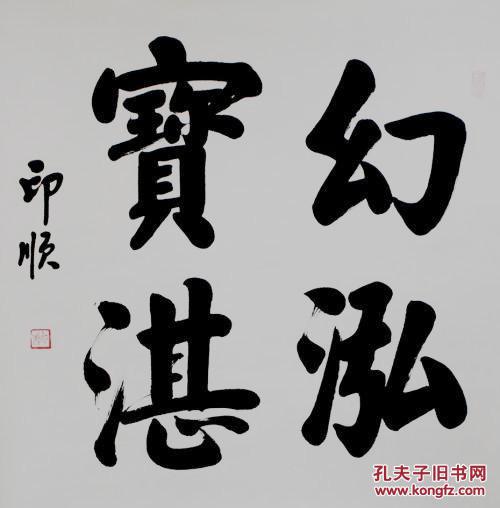 幻泓
寶湛
印順
孔夫子旧书网
www.kongfz.com